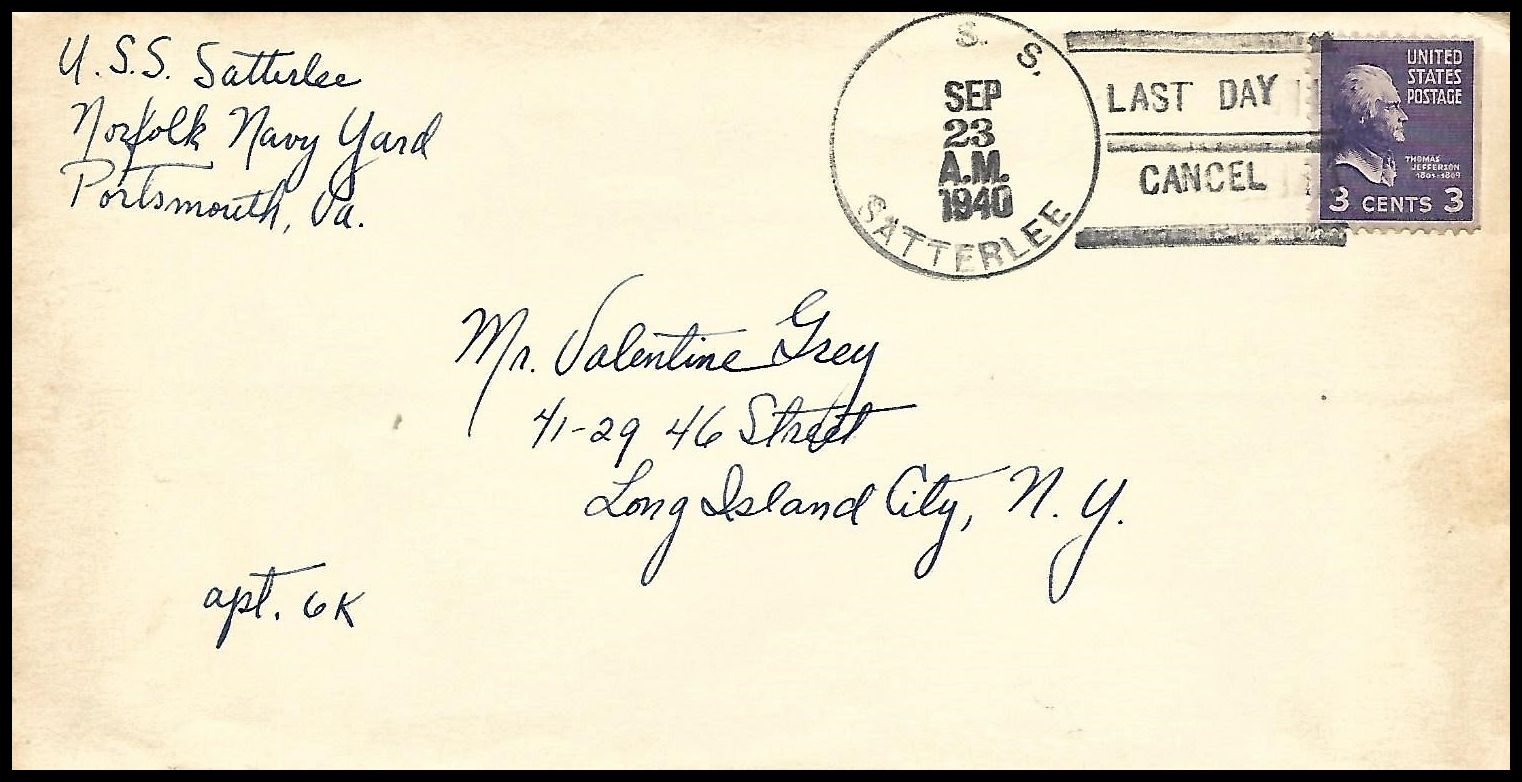 U.S.S. Satterlee
Norfolk Navy Yard
Portsmouth, Va.
S. S.
SEP
23
A.M.
1940
SATTERLEE
LAST DAY
CANCEL
UNITED
STATES
POSTAGE
THOMAS
JEFFERSON
1801-1809
3 CENTS 3
Mr. Valentine Grey
41-29 46 Street
Long Island City, N. Y.
apt. 6K